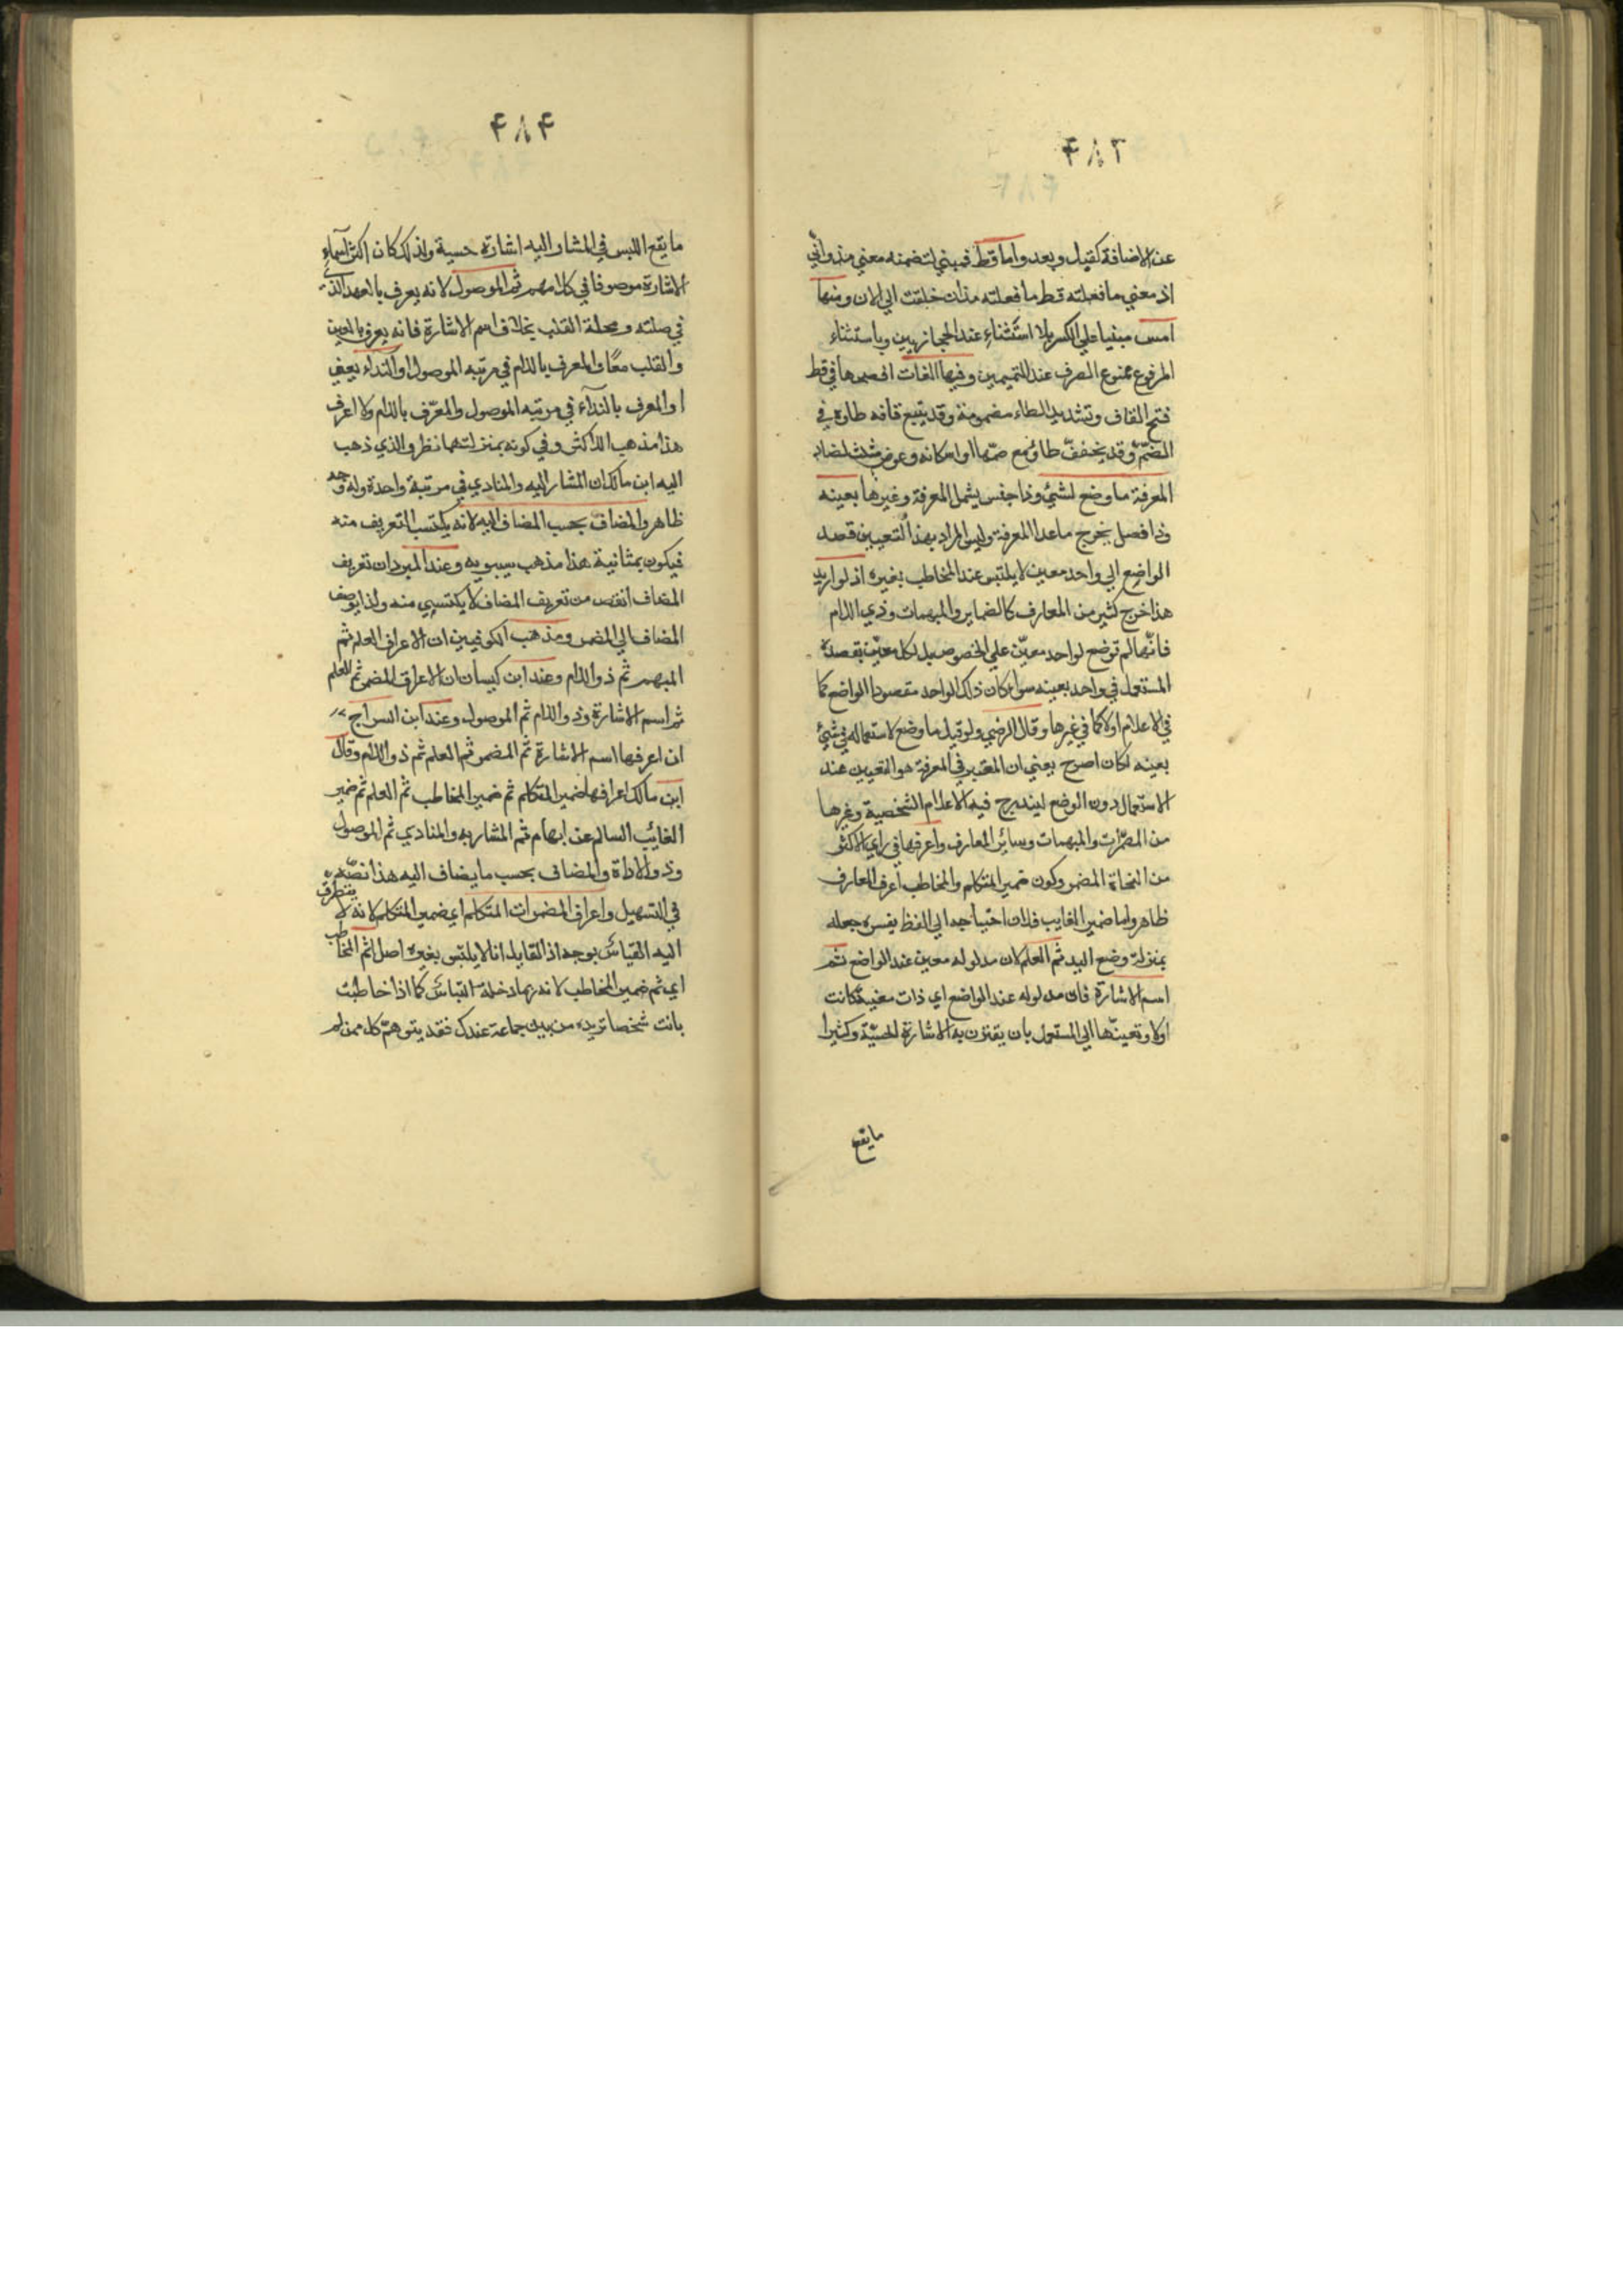 ۴۸۳
عن الاضافة كقبل وبعد واما قط فمبني لتضمنه معني منذ والي
اذ معني ما فعلته قط ما فعلته منذ ان خلقت الي الان ومنها
امس مبنيا علي الكسر بلا استثناء عند الحجازيين وباستثناء
المرفوع ممنوع الصرف عند التميميين وفيها لغات افصحها في قط
فتح القاف وتشديد الطاء مضمومة وقد يتبع قافه طاءه في
الضم وقد يخفف طاؤه مع ضمها او اسكانه وعوض مثلث لضاد
المعرفة ما وضع لشيئ وذا جنس يشمل المعرفة وغيرها بعينه
وذا فصل يخرج ما عدا المعرفة وليس المراد بهذا التعيين قصد
الواضع الي واحد معين لا يلتبس عند المخاطب بغيره اذ لو اريد
هذا خرج كثير من المعارف كالضماير والمبهمات وذي اللام
فانها لم توضع لواحد معين علي الخصوص بل لكل معين بقصده
المستعمل في واحد بعينه سواء كان ذلك الواحد مقصودا الواضع كما
في الاعلام اولا كما في غيرها وقال الرضي ولو قيل ما وضع لاستعماله في شيئ
بعينه لكان اصرح يعني ان المعتبر في المعرفة هو التعيين عند
الاستعمال دون الوضع ليندرج فيه الاعلام الشخصية وغيرها
من المضمرات والمبهمات وسائر المعارف واعرفها في راي الاكثر
من النحاة المضمر وكون ضمير المتكلم والمخاطب اعرف المعارف
ظاهر واما ضمير الغايب فلان احتياجه الي لفظ يفسره جعله
بمنزلة وضع اليد ثم العلم لان مدلوله معين عند الواضع ثم
اسم الاشارة فان مدلوله عند الواضع اي ذات معينة كانت
اولا وتعينها الي المستعمل بان يقترن به الاشارة الحسية وكثيرا
ما يقع
۴۸۴
ما يقع اللبس في المشار اليه اشارة حسية ولذلك كان اكثر اسماء
الاشارة موصوفا في كلامهم ثم الموصول لانه يعرف بالعهد الذي
في صلته ومحله القلب بخلاف اسم الاشارة فانه يعرف بالعين
والقلب معا والمعرف باللام في مرتبه الموصول او النداء يعني
او المعرف بالنداء في مرتبه الموصول والمعرف باللام ولا اعرف
هذا مذهب الاكثر وفي كونه بمنزلتهما نظر والذي ذهب
اليه ابن مالك ان المشار اليه والمنادي في مرتبة واحدة وله وجه
ظاهر والمضاف بحسب المضاف اليه لانه يكتسب التعريف منه
فيكون بمثابة هذا مذهب سيبويه وعند المبرد ان تعريف
المضاف انقص من تعريف المضاف لا يكتسي منه ولذا يوصف
المضاف الي المضمر ومذهب الكوفيين ان الاعراف العلم ثم
المبهم ثم ذو اللام وعند ابن كيسان ان الاعراف المضمر ثم العلم
ثم اسم الاشارة وذو اللام ثم الموصول وعند ابن السراج
ان اعرفها اسم الاشارة ثم المضمر ثم العلم ثم ذو اللام وقال
ابن مالك اعرافها ضمير المتكلم ثم ضمير المخاطب ثم العلم ثم ضمير
الغائب السالم عن ابهام ثم المشار به والمنادي ثم الموصول
وذو الاداة والمضاف بحسب ما يضاف اليه هذا نصه
في التسهيل واعراف المضمرات المتكلم اي ضمير المتكلم لانه لا يتطرق
اليه القياس بوجه اذ القايل انا لا يلتبس بغيره اصلا ثم المخاطب
اي ثم ضمير المخاطب لانه ربما دخله التباس كما اذا خاطبت
بانت شخصا تريده من بين جماعة عندك فقد يتوهم كل ممن لم